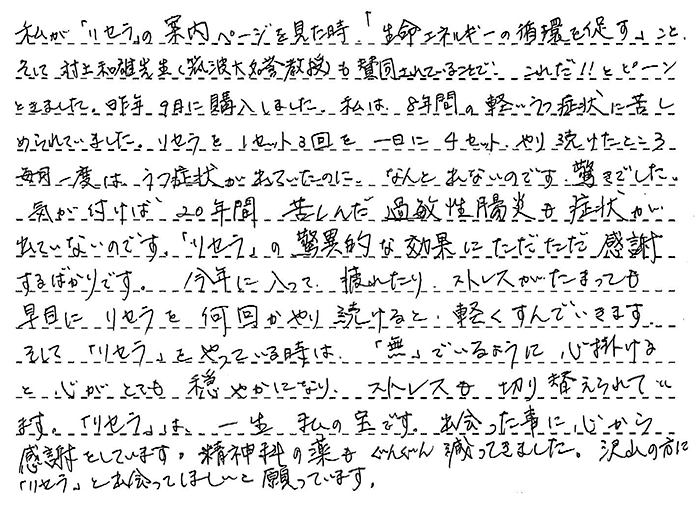 私が「リセラ」の案内ページを見た時「生命エネルギーの循環を促す」こと
そして村上和雄先生(筑波大名誉教授)も賛同されていることで、これだ!!とピーン
ときました。昨年9月に購入しました。私は、8年間の軽いうつ症状に苦し
められていました。リセラを1セット3回を一日に4セット、やり続けたところ
毎月一度は、うつ症状が出ていたのに、なんと出ないのです。驚きでした。
気が付けば、20年間苦しんだ過敏性腸炎も症状が
出ていないのです。「リセラ」の驚異的な効果にただただ感謝
するばかりです。今年に入って、疲れたり、ストレスがたまっても
早目にリセラを何回かやり続けると、軽くすんでいきます。
そして「リセラ」をやっている時は、「無」でいるように心掛ける
と心がとても穏やかになり、ストレスも切り替えられてい
ます。「リセラ」は、一生私の宝です。出会った事に心から
感謝をしています。精神科の薬もぐんぐん減ってきました。沢山の方に
「リセラ」と出会ってほしいと願っています。